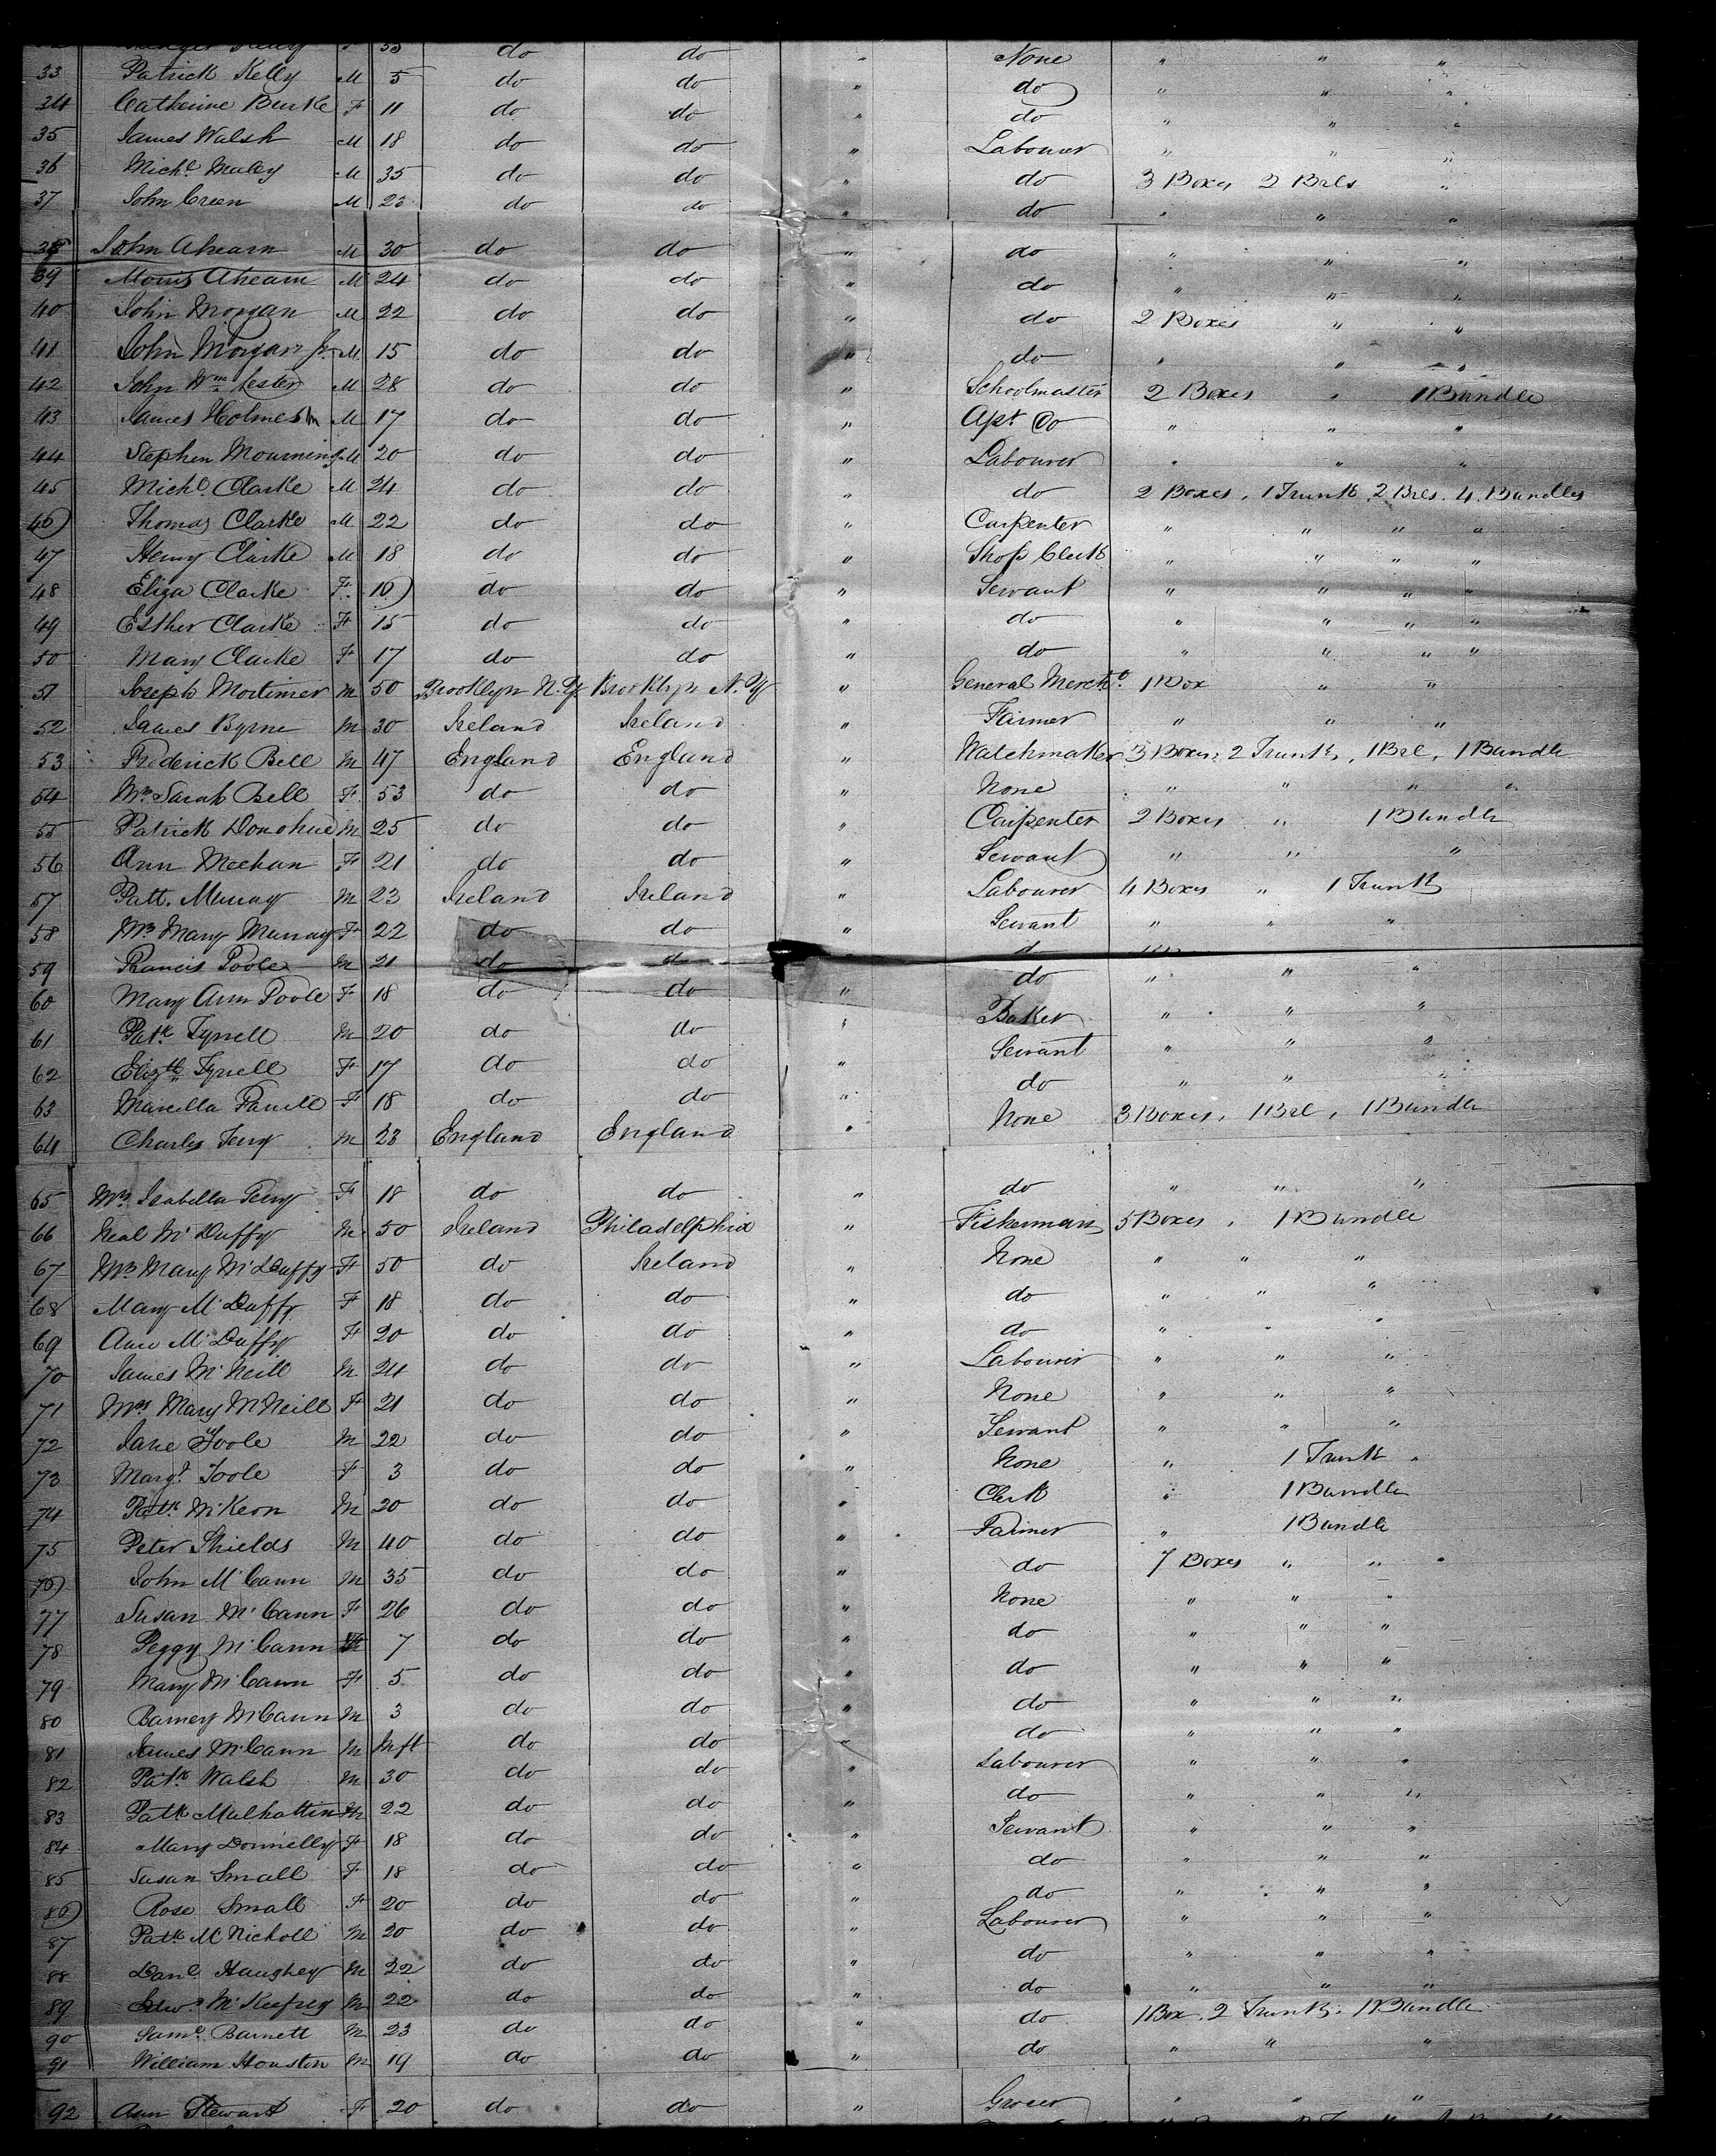 do do None " " "
33 Patrick Kelly M 5 do do " do " " "
34 Catherine Burke F 11 do do " do " " "
35 James Walsh M 18 do do " Labourer " " "
36 Michl. M 35 do do " do 3 Boxes 2 Brls "
37 John Green M 23 do do " do " " "
38 John Ahearn M 30 do do " do " " "
39 Morris Ahearn M 24 do do " do " " "
40 John Morgan M 22 do do " do 2 Boxes " "
41 John Morgan Jr. M 15 do do " do " " "
42 John Wm. Lester M 28 do do " Schoolmaster 2 Boxes " 1 Bundle
43 James Holmes M 17 do do " Apt. Do " " "
44 Stephen Mourning M 20 do do " Labourer " " "
45 Michl. Clarke M 24 do do " do 2 Boxes, 1 Trunk, 2 Brls. 4 Bundles
46 Thomas Clarke M 22 do do " Carpenter " " " "
47 Henry Clarke M 18 do do " Shop Clerk " " " "
48 Eliza Clarke F. 10 do do " Servant " " " "
49 Esther Clarke F 15 do do " do " " " "
50 Mary Clarke F 17 do do " do " " " "
51 Joseph Mortimer M 50 Brooklyn N.Y. Brooklyn N.Y " General Mercht. 1 Box " "
52 James Byrne M 30 Ireland Ireland " Farmer " " "
53 Frederick Bell M 47 England England " Watchmaker 3 Boxes, 2 Trunks, 1 Brl, 1 Bundle
54 Mrs Sarah Bell F 53 do do " None " " " "
55 Patrick Donohue M 25 do do " Carpenter 2 Boxes " 1 Bundle
56 Ann Meehan F 21 do do " Servant " " "
57 Patt. Murray M 23 Ireland Ireland " Labourer 4 Boxes " 1 Trunk
58 Mrs Mary Murray F 22 do do " Servant " " "
59 Francis Poole M 21 do do do " " "
60 Mary Ann Poole F 18 do do " do " " "
61 Patk. Tyrrell M 20 do do " Baker " " "
62 Elizth. Tyrrell F 17 do do " Servant " " "
63 Marcella Farrell F 18 do do " do " " "
64 Charles Terry M 28 England England " None 3 Boxes, 1 Brl, 1 Bundle
65 Mrs Isabella Terry F 18 do do " do " " "
66 Neal McDuffy M 50 Ireland Philadelphia " Fisherman 5 Boxes, 1 Bundle
67 Mrs Mary McDuffy F 50 do Ireland " None " " "
68 Mary McDuffy F 18 do do " do " " "
69 Ann McDuffy F 20 do do " do " " "
70 James McNeill M 24 do do " Labourer " " "
71 Mrs Mary McNeill F 21 do do " None " " "
72 Jane Toole M 22 do do " Servant " " "
73 Margt. Toole F 3 do do " None " 1 Trunk "
74 Patk. McKeon M 20 do do " Clerk " 1 Bundle
75 Peter Shields M 40 do do " Farmer " 1 Bundle
76 John McCann M 35 do do " do 7 Boxes " "
77 Susan McCann F 26 do do " None " " "
78 Peggy McCann F 7 do do " do " " "
79 Mary McCann F 5 do do " do " " "
80 Barney McCann M 3 do do " do " " "
81 James McCann M Inft do do " do " " "
82 Patk. Walsh M 30 do do " Labourer " " "
83 Patk Mulhattin M 22 do do " do " " "
84 Mary Donnelly F 18 do do " Servant " " "
85 Susan Small F 18 do do " do " " "
86 Rose Small F 20 do do " do " " "
87 Patk McNicholl M 20 do do " Labourer " " "
88 Danl. Haughey M 22 do do " do " " "
89 Edwd. McKeefrey M 22 do do " do " " "
90 Saml. Barnett M 23 do do " do 1 Box, 2 Trunks, 1 Bundle
91 William Houston M 19 do do " do " " "
92 Ann Stewart F 20 do do " Grocer " " "